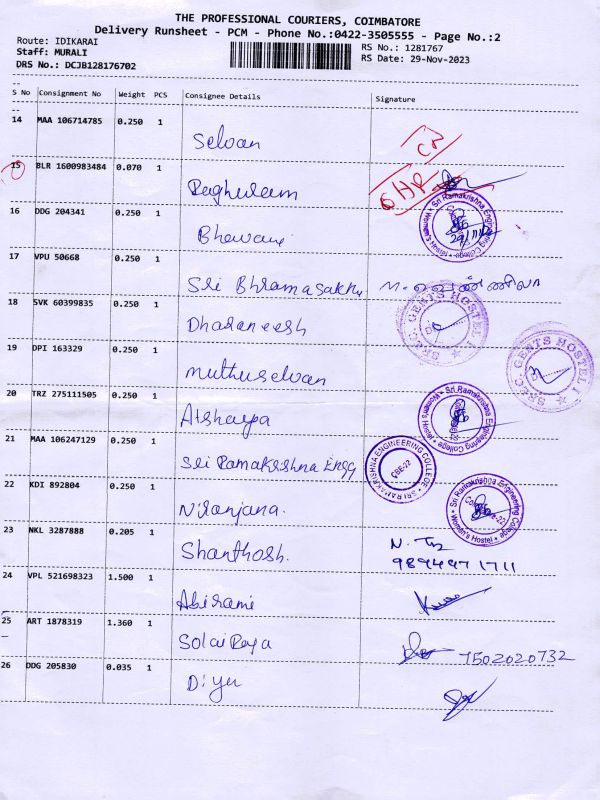 THE PROFESSIONAL COURIERS, COIMBATORE
Delivery Runsheet - PCM - Phone No.:0422-3505555 - Page No.:2
Route: IDIKARAI
Staff: MURALI
DRS No.: DCJB128176702
RS No.: 1281767
RS Date: 29-Nov-2023
S No Consignment No Weight PCS Consignee Details Signature
14 MAA 106714785 0.250 1 Selvan
15 BLR 1600983484 0.070 1 Raghuram
16 DDG 204341 0.250 1 Bhavani
Sri Ramakrishna Engineering College
Women's Hostel
29/11/23
17 VPU 50668 0.250 1 Sri Bhramasakthi
18 SVK 60399835 0.250 1 Dharaneesh
SREC GENTS HOSTEL I
19 DPI 163329 0.250 1 Muthuselvan
SREC GENTS HOSTEL I
20 TRZ 275111505 0.250 1 Aishwarya
Sri Ramakrishna Engineering College
Women's Hostel
21 MAA 106247129 0.250 1 Sri Ramakrishna Engg
SRI RAMAKRISHNA ENGINEERING COLLEGE
CBE-22
22 KDI 892804 0.250 1 Niranjana.
Sri Ramakrishna Engineering College
Women's Hostel
23 NKL 3287888 0.205 1 Shanthosh.
9894471711
24 VPL 521698323 1.500 1 Abirami
25 ART 1878319 1.360 1 Solai Raja 7502020732
26 DDG 205830 0.035 1